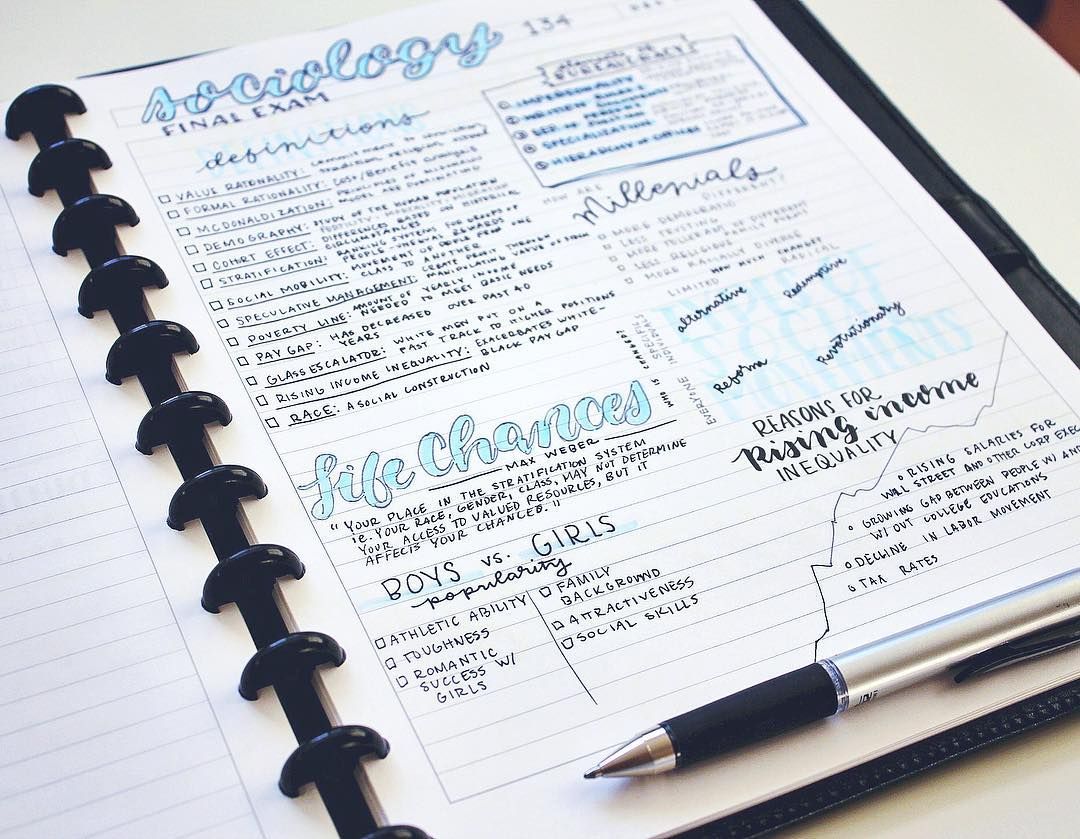 sociology 134
FINAL EXAM
definitions
VALUE RATIONALITY: commitment tradition, religion,
FORMAL RATIONALITY: COST/BENEFIT
MCDONALDIZATION: PRINCIPLES OF
DEMOGRAPHY: STUDY OF THE HUMAN POPULATION
COHORT EFFECT: DIFFERENCES BASED ON HISTORIC CIRCUMSTANCES
STRATIFICATION: PEOPLE REWARDS
SOCIAL MOBILITY: MOVEMENT FROM ONE CLASS TO ANOTHER
SPECULATIVE MANAGEMENT: CREATE PROFIT THROUGH MANIPULATING VALUE OF FIRM
POVERTY LINE: AMOUNT OF YEARLY INCOME
NEEDED TO MEET BASIC NEEDS
PAY GAP: HAS DECREASED OVER PAST 40
YEARS
GLASS ESCALATOR: WHITE MEN PUT ON A
FAST TRACK TO HIGHER POSITIONS
RISING INCOME INEQUALITY: EXACERBATES WHITE-
BLACK PAY GAP
RACE: A SOCIAL CONSTRUCTION
life chances
MAX WEBER
"YOUR PLACE IN THE STRATIFICATION SYSTEM
ie. YOUR RACE, GENDER, CLASS, MAY NOT DETERMINE
YOUR ACCESS TO VALUED RESOURCES, BUT IT
AFFECTS YOUR CHANCES."
BOYS VS. GIRLS
popularity
ATHLETIC ABILITY
TOUGHNESS
ROMANTIC
SUCCESS W/
GIRLS
FAMILY
BACKGROUND
ATTRACTIVENESS
SOCIAL SKILLS
BUREAUCRACY
IMPERSONALITY
WRITTEN RULES
SPECIALIZATION
HIERARCHY OF OFFICES
HOW ARE
Millenials
DIFFERENT?
MORE DEMOCRATIC
LESS TRUSTING
MORE TOLERANT OF DIFFERENT
LESS RELIGIOUS
MORE RACIALLY DIVERSE
HOW MUCH CHANGE?
LIMITED
RADICAL
WHO IS CHANGED?
SPECIFIC
INDIVIDUALS
EVERYONE
TYPES OF
SOCIAL
MOVEMENTS
alternative
Redemptive
Reform
Revolutionary
REASONS FOR
Rising income
INEQUALITY
RISING SALARIES FOR
WALL STREET AND OTHER CORP EXEC
GROWING GAP BETWEEN PEOPLE W/ AND
W/OUT COLLEGE EDUCATIONS
DECLINE IN LABOR MOVEMENT
TAX RATES